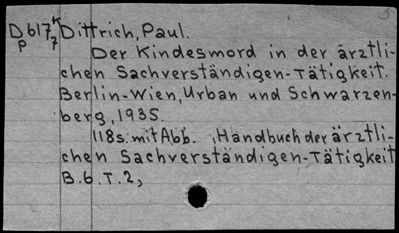 3
D617K Dittrich, Paul.
p 7 Der Kindesmord in der ärztli-
chen Sachverständigen-Tätigkeit.
Berlin-Wien, Urban und Schwarzen-
berg, 1935.
118s. mit Abb. (Handbuch der ärztli-
chen Sachverständigen-Tätigkeit
B.6.T.2,